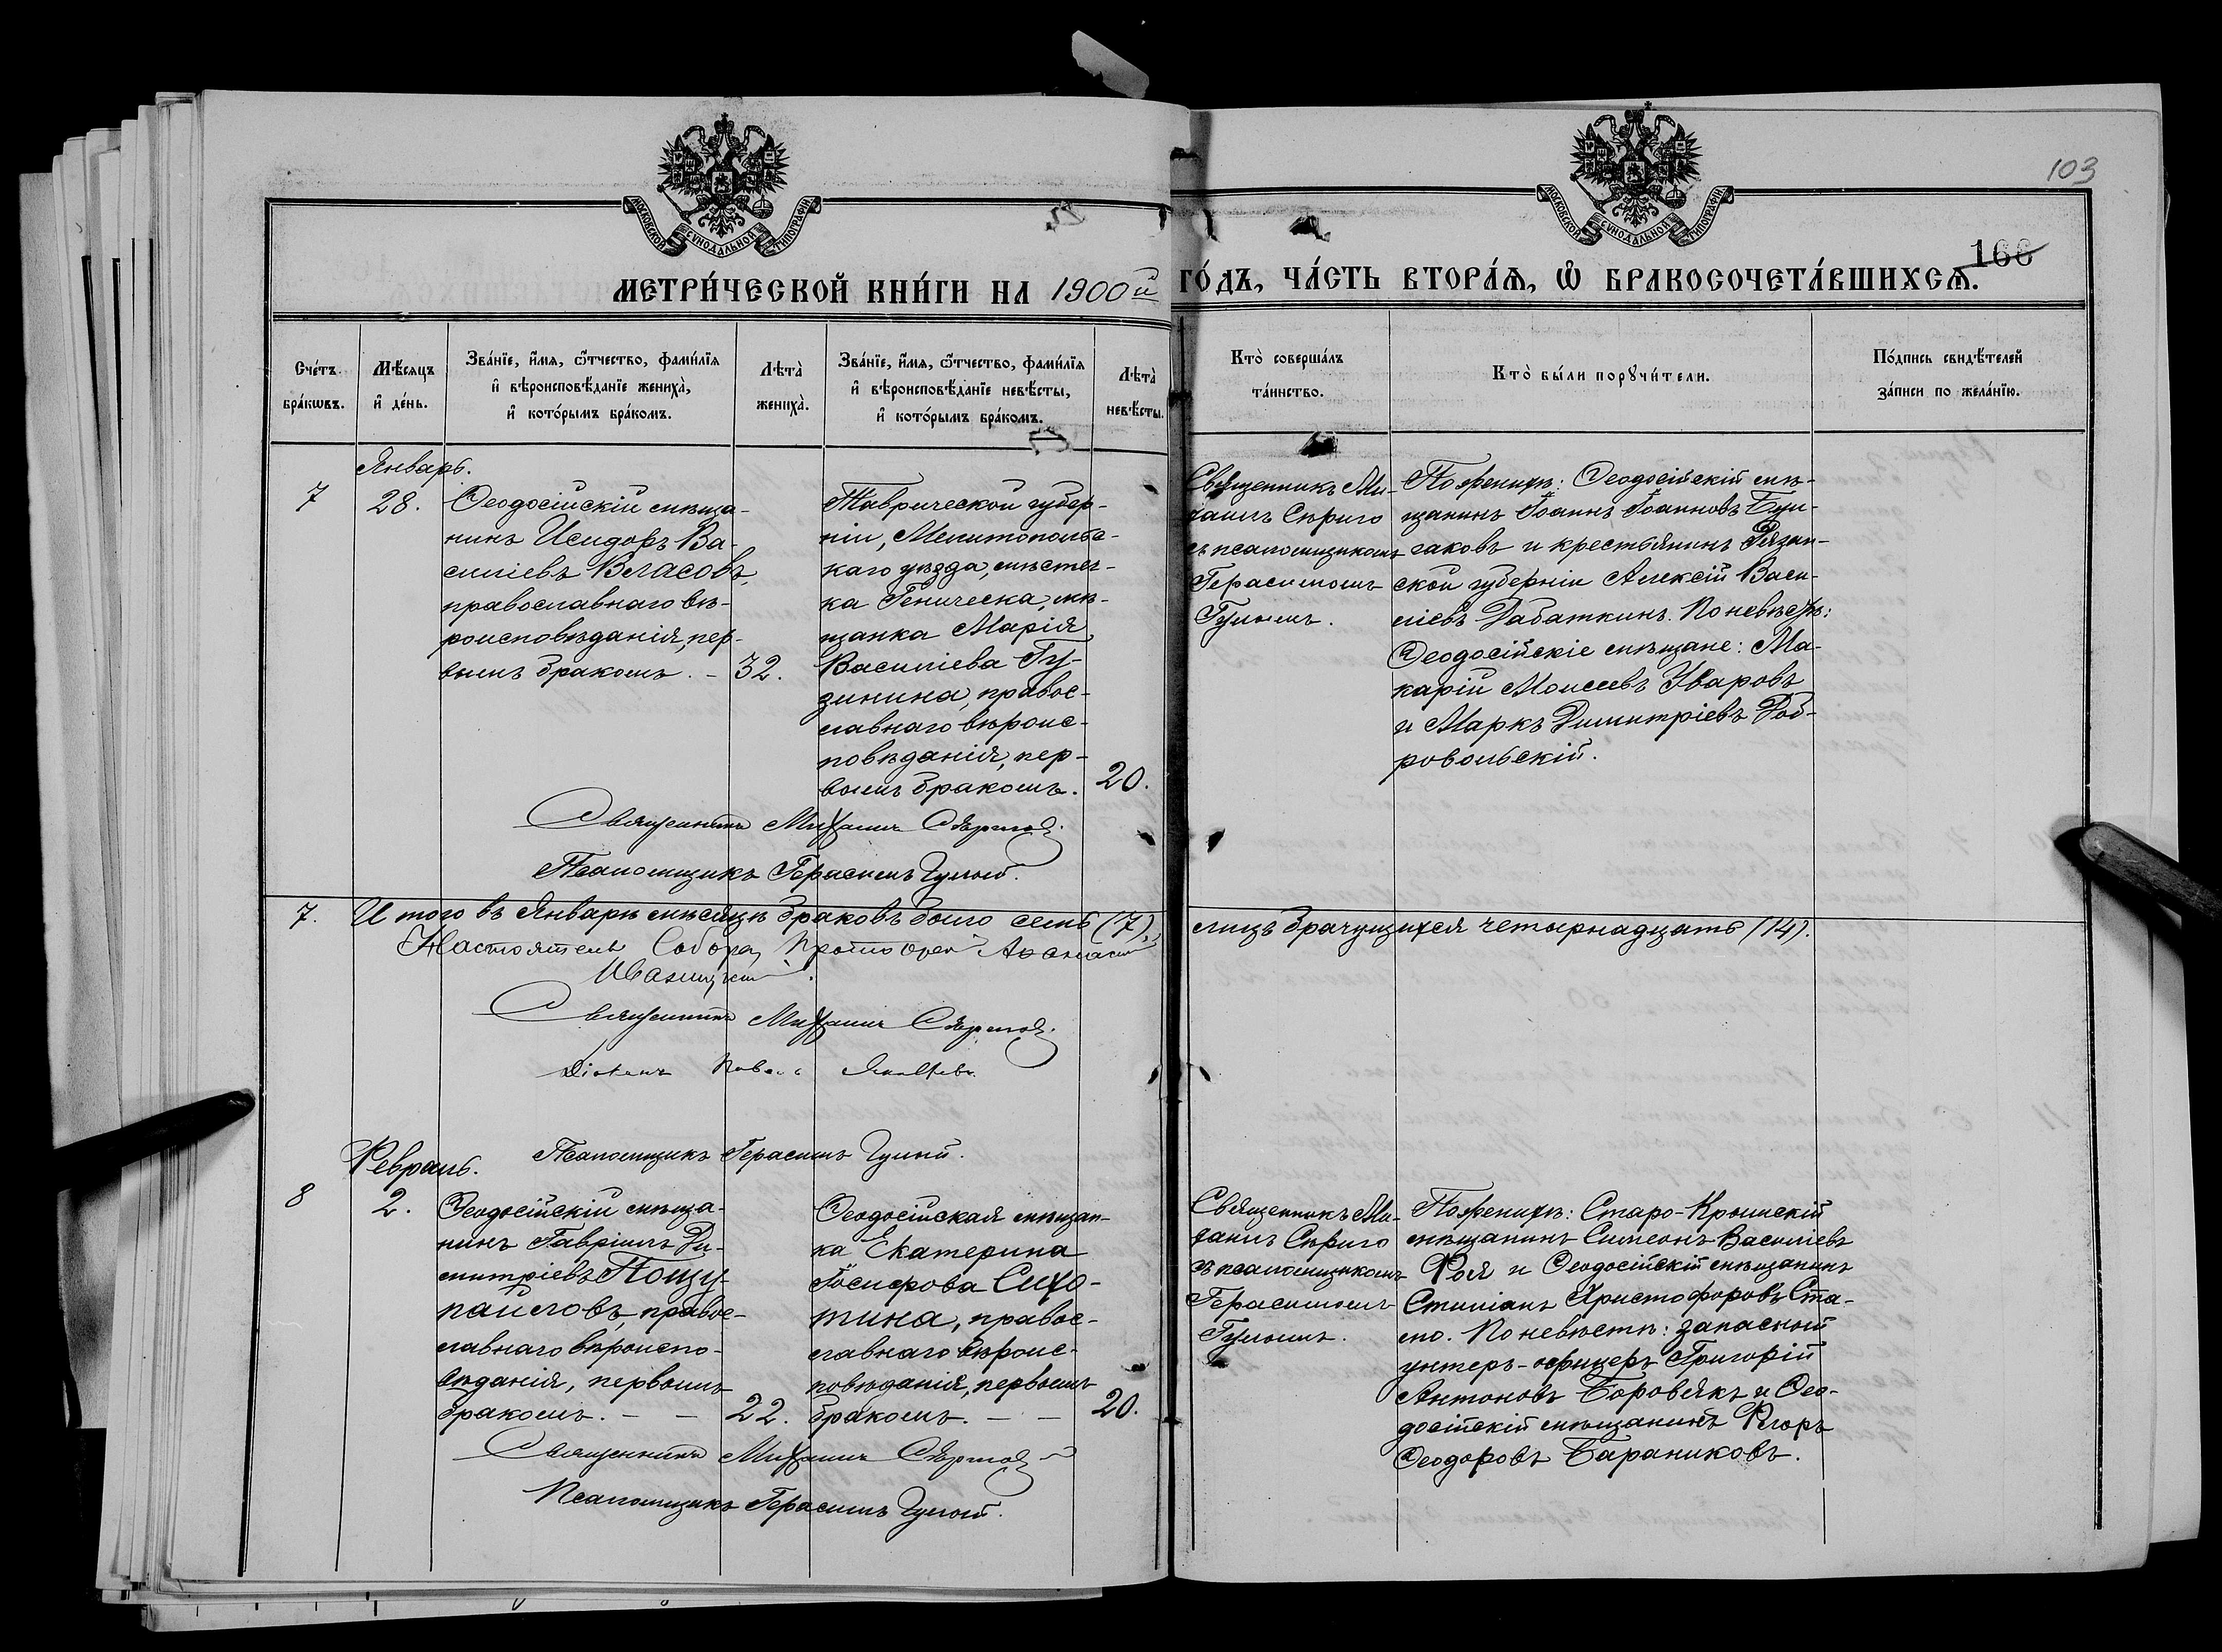 103
166
МОСКОВСКОЙ СѴНОДАЛЬНОЙ ТИПОГРАФІИ
МОСКОВСКОЙ СѴНОДАЛЬНОЙ ТИПОГРАФІИ
МЕТРИ́ЧЕСКОЙ КНИ́ГИ НА 1900й ГО́ДЪ, ЧА́СТЬ ВТОРА́Ѧ, Ѽ БРАКОСОЧЕТА́ВШИХСѦ.
Сче́тъ
бра́кѡвъ.
Мѣ́сяцъ
и҆ де́нь.
Зва́нїе, и҆́мя, ѻ҆́тчество, фами́лїя
и҆ вѣроисповѣ́данїе жениха̀,
и҆ кото́рымъ бра́комъ.
Лѣта̀
жениха̀.
Зва́нїе, и҆́мя, ѻ҆́тчество, фами́лїя
и҆ вѣроисповѣ́данїе невѣ́сты,
и҆ кото́рымъ бра́комъ.
Лѣта̀
невѣ́сты.
Кто̀ соверша́лъ
та́инство.
Кто̀ бы́ли порꙋчи́тели.
По́дпись свидѣ́телей
за́писи по жела́нїю.
Январь.
7
28.
Ѳеодосійскій мѣща-
нинъ Исидоръ Ва-
силіевъ Власовъ,
православнаго вѣ-
роисповѣданія, пер-
вымъ бракомъ. –
32.
Таврической губер-
ніи, Мелитопольс-
каго уѣзда, мѣстеч-
ка Геническа, мѣ-
щанка Марія
Василіева Гу-
зинина, правос-
лавнаго вѣроис-
повѣданія, пер-
вымъ бракомъ.
20.
Священникъ Ми-
хаилъ Сѣриго
съ псаломщикомъ
Герасимомъ
Гулымъ.
По женихѣ: Ѳеодосійскій мѣ-
щанинъ Іоаннъ Іоанновъ Бул-
гаковъ и крестьянинъ Рязан-
ской губерніи Алексій Васи-
ліевъ Дабаткинъ. По невѣстѣ:
Ѳеодосійскіе мѣщане: Ма-
карій Моисеевъ Уваровъ
и Маркъ Димитріевъ Доб-
ровольскій.
Священникъ Михаилъ Сѣриго
Псаломщикъ Герасимъ Гулый.
7.
Итого въ Январѣ мѣсяцѣ браковъ было семь (7),
лицъ брачущихся четырнадцать (14).
Настоятель Собора, Протоіерей Аѳанасій
Священникъ Михаилъ Сѣриго
Діаконъ Павелъ
Псаломщикъ Герасимъ Гулый.
Февраль.
8
2.
Ѳеодосійскій мѣща-
нинъ Гавріилъ Ди-
митріевъ Полу-
пайловъ, правос-
лавнаго вѣроиспо-
вѣданія, первымъ
бракомъ. – –
22.
Ѳеодосійская мѣщан-
ка Екатерина
Іосифова Сихо-
тина, правос-
лавнаго вѣроис-
повѣданія, первымъ
бракомъ. – –
20.
Священникъ Ми-
хаилъ Сѣриго
съ псаломщикомъ
Герасимомъ
Гулымъ.
По женихѣ: Старо-Крымскій
мѣщанинъ Симеонъ Василіевъ
Фоя и Ѳеодосійскій мѣщанинъ
Стиліанъ Христофоровъ Ста-
мо. По невѣстѣ: запасной
унтеръ-офицеръ Григорій
Антоновъ Боровякъ и Ѳео-
досійскій мѣщанинъ Егоръ
Ѳеодоровъ Бараниковъ.
Священникъ Михаилъ Сѣриго
Псаломщикъ Герасимъ Гулый.